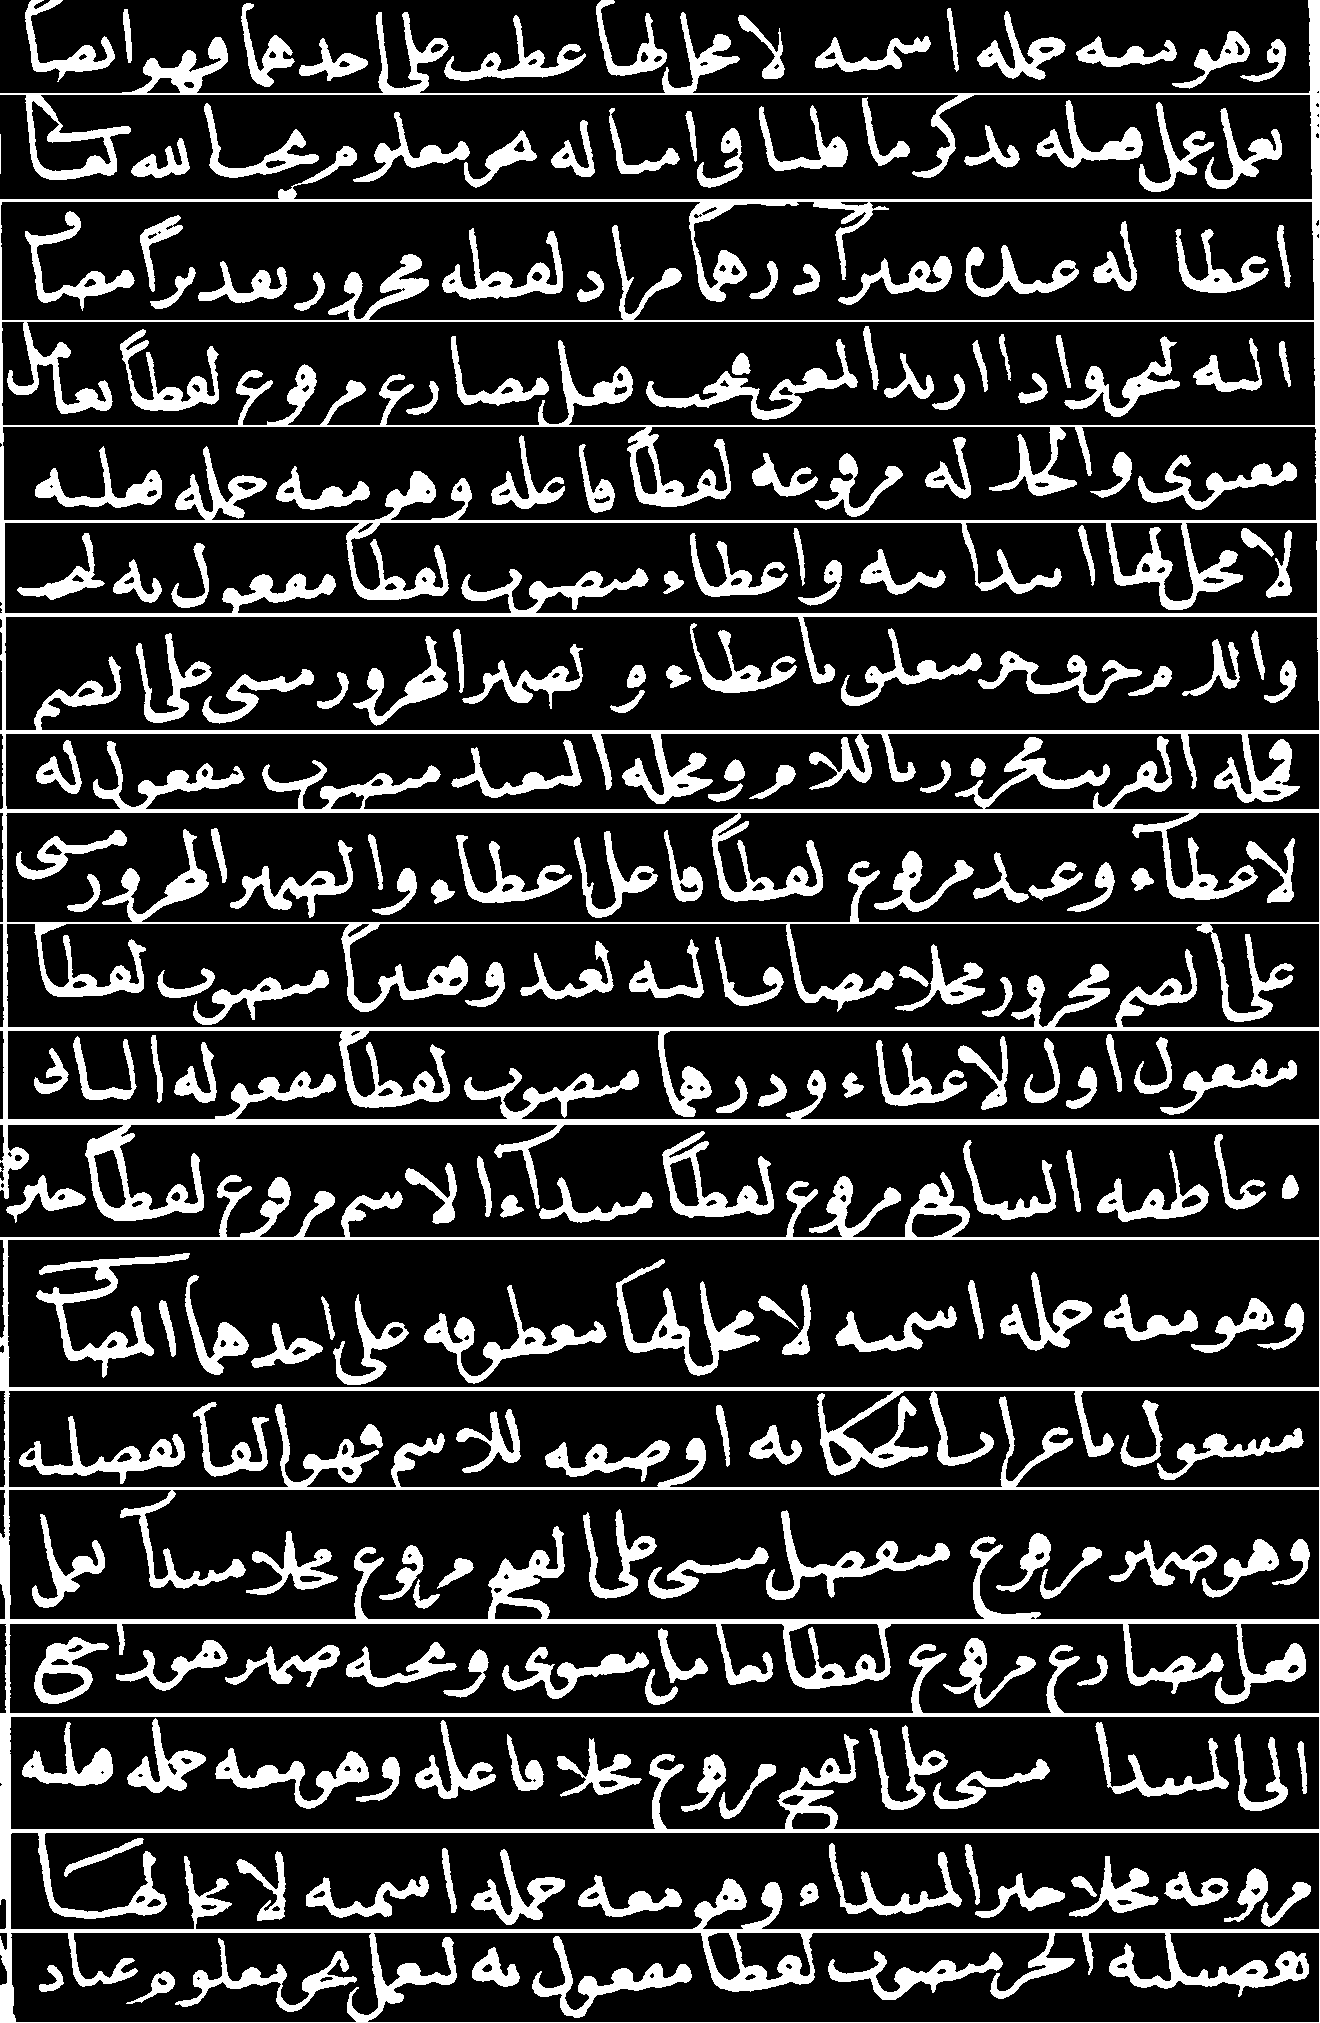 وهو معه جملة اسمية لا محل لها عطف على احدهما فهو ايضا
يعمل عمل فعله يذكر ما طلبا في امثاله نحو معلوم يحب الله تعالى
اعطا له عبده فقيرا درهما مراد لفظه مجرور تقديرا مضاف
اليه لنحو واذا اريد المعنى فيحب فعل مضارع مرفوع لفظا بعامل
معنوى والجلالة مرفوعة لفظا فاعله وهو معه جملة فعلية
لا محل لها ابتدائية واعطاء منصوب لفظا مفعول به ليحب
واللام حرف جر متعلق باعطاء و الضمير المجرور مبنى على الضم
فمحله القريب مجرور باللام ومحله البعيد منصوب مفعول له
لاعطاء وعبد مرفوع لفظا فاعل اعطاء والضمير المجرور مبنى
على الضم مجرور محلا مضاف اليه لعبد وفقيرا منصوب لفظا
مفعول اول لاعطاء ودرهما منصوب لفظا مفعوله الثانى
ه عاطفة السابع مرفوع لفظا مبتداء الاسم مرفوع لفظا خبره
وهو معه جملة اسمية لا محل لها معطوفة على احدهما المضاف
مشغول باعراب الحكاية او صفة للاسم فهو الفا تفصيلية
وهو ضمير مرفوع منفصل مبنى على الفتح مرفوع محلا مبتدأ يعمل
فعل مضارع مرفوع لفظا بعامل معنوى وتحته ضمير هو راجع
الى المبتدا مبنى على الفتح مرفوع محلا فاعله وهو معه جملة فعلية
مرفوعة محلا خبر المبتداء وهو معه جملة اسمية لا محل لها
تفصيلية الجر منصوب لفظا مفعول به ليعمل نحو معلوم عباد